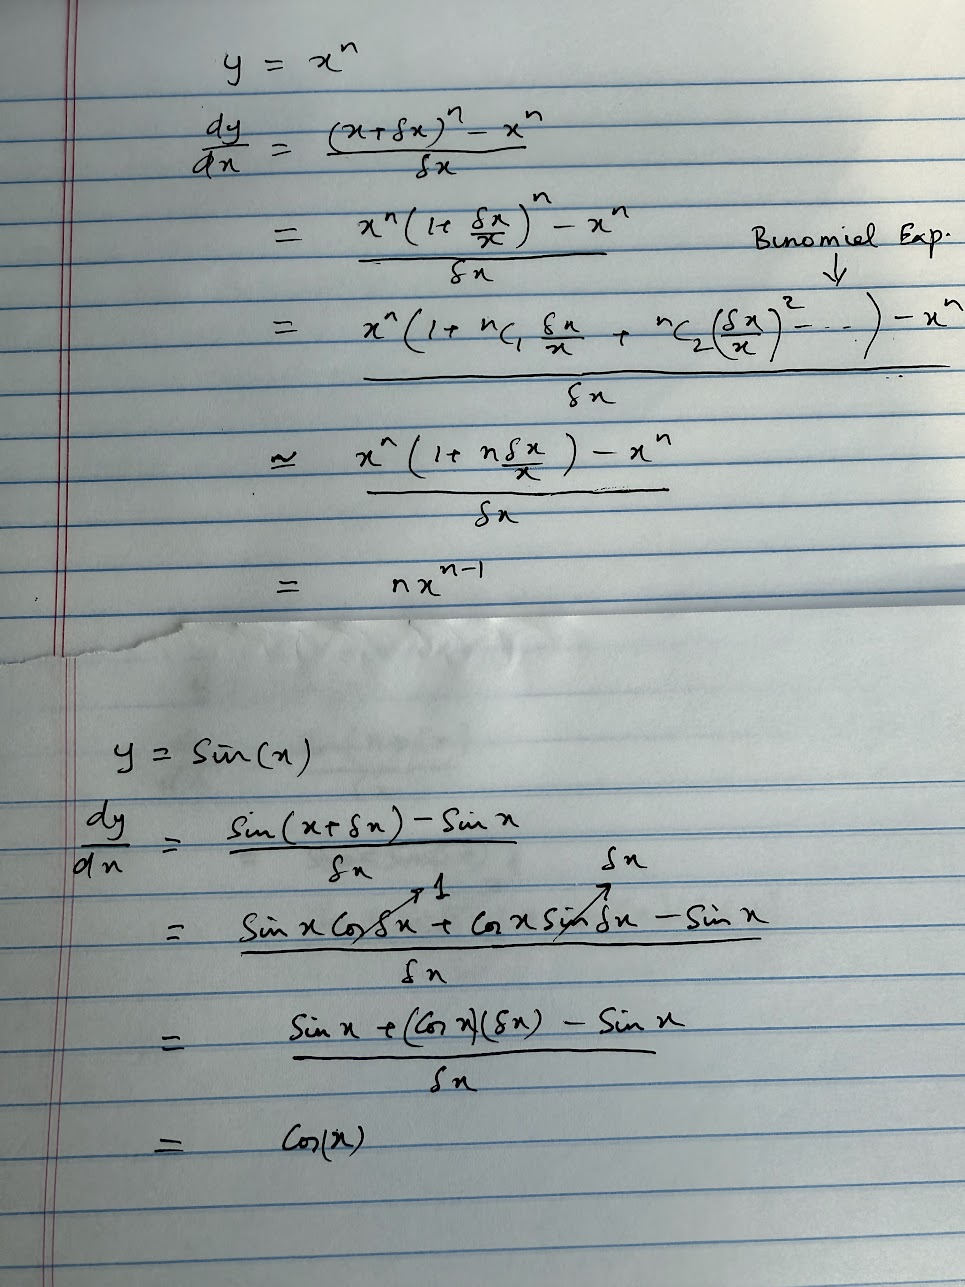 y = xⁿ
dy/dx = ((x+δx)ⁿ − xⁿ)/δx
= (xⁿ(1+ δx/x)ⁿ − xⁿ)/δx
Binomial Exp.
↓
= (xⁿ(1+ ⁿC₁ δx/x + ⁿC₂(δx/x)² − ...) − xⁿ)/δx
≃ (xⁿ(1+ nδx/x) − xⁿ)/δx
= nxⁿ⁻¹
y = Sin(x)
dy/dx = (Sin(x+δx) − Sin x)/δx
1 δx
= (Sin x Cos δx + Cos x Sin δx − Sin x)/δx
= (Sin x + (Cos x)(δx) − Sin x)/δx
= Cos(x)